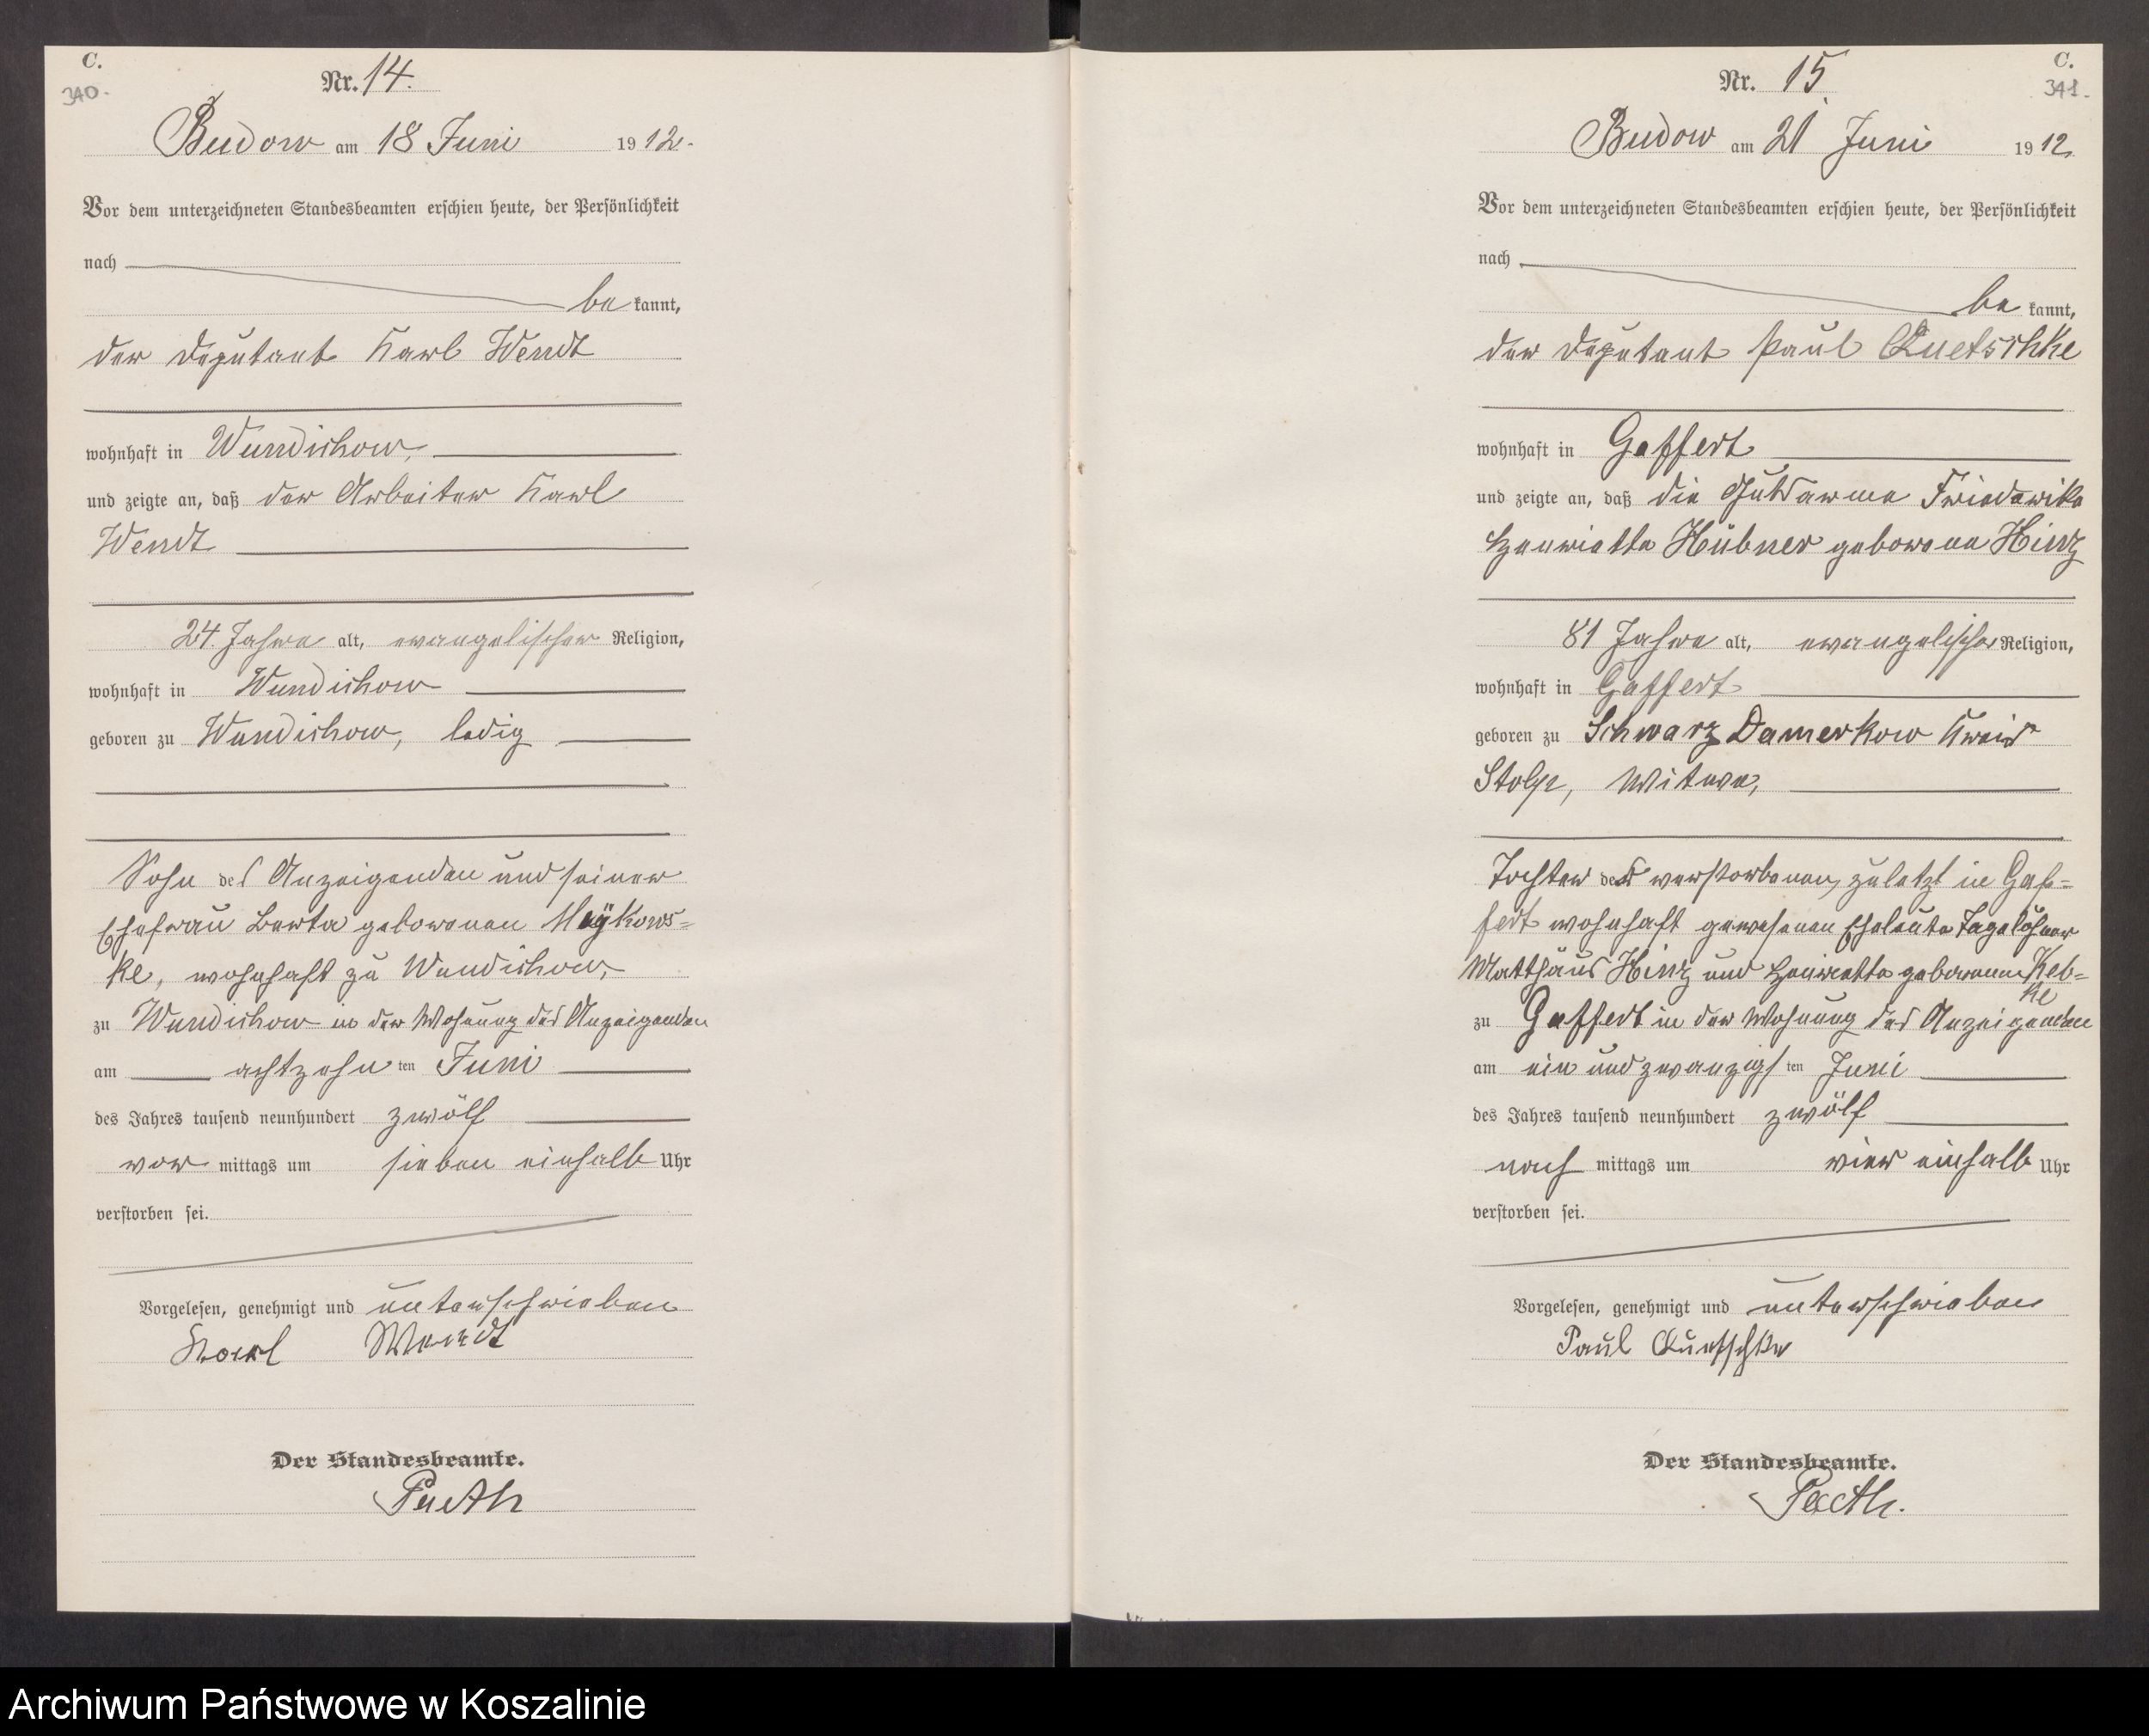 C.
340.
Nr. 14.
Budow am 18 Juni 1912.
Vor dem unterzeichneten Standesbeamten erschien heute, der Persönlichkeit
nach
be kannt,
der Deputant Karl Wendt
wohnhaft in Wundichow,
und zeigte an, daß der Arbeiter Karl
Wendt
24 Jahre alt, evangelischer Religion,
wohnhaft in Wundichow
geboren zu Wundichow, ledig
Sohn des Anzeigenden und seiner
Ehefrau Berta geborenen Meÿkows=
ke, wohnhaft zu Wundichow,
zu Wundichow in der Wohnung des Anzeigenden
am achtzehn ten Juni
des Jahres tausend neunhundert zwölf
vor mittags um sieben einhalb Uhr
verstorben sei.
Vorgelesen, genehmigt und unterschrieben
Karl Wendt
Der Standesbeamte.
C.
341.
Nr. 15.
Budow am 21 Juni 1912.
Vor dem unterzeichneten Standesbeamten erschien heute, der Persönlichkeit
nach
be kannt,
der Deputant Paul Quetschke
wohnhaft in Gaffert
und zeigte an, daß die Friederike
Henriette Hübner geborene Hinz
81 Jahre alt, evangelischer Religion,
wohnhaft in Gaffert
geboren zu Schwarz Damerkow Kreis
Stolp, Witwe,
Tochter der verstorbenen, zuletzt in Gaf=
fert wohnhaft gewesenen Eheleute Tagelöhner
Matthäus Hinz und Henriette geborenen Keb=
ke
zu Gaffert in der Wohnung des Anzeigenden
am ein und zwanzigs ten Juni
des Jahres tausend neunhundert zwölf
nach mittags um vier einhalb Uhr
verstorben sei.
Vorgelesen, genehmigt und unterschrieben
Paul Quetschke
Der Standesbeamte.
Archiwum Państwowe w Koszalinie